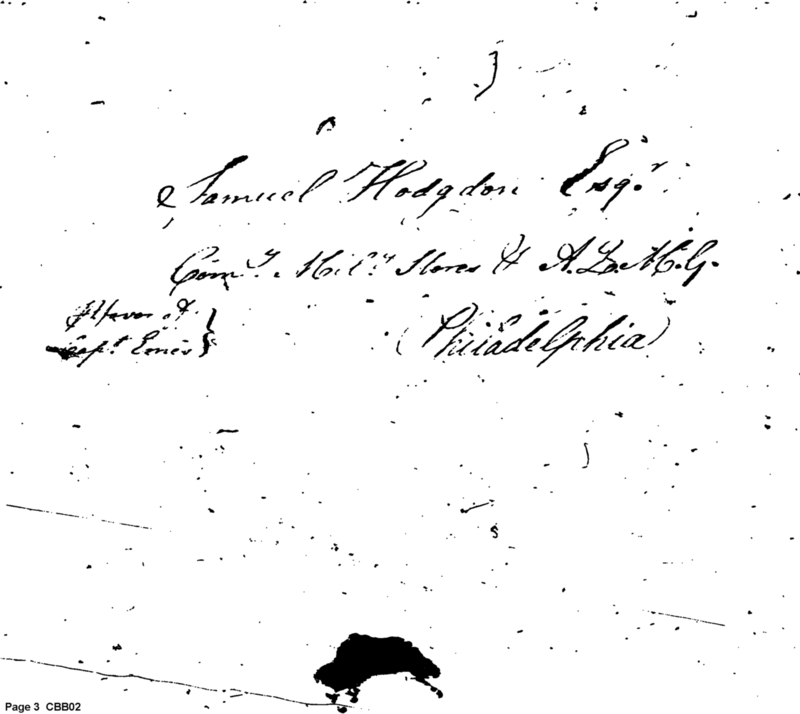 Samuel Hodgdon Esqr.
Comy. Mily Stores & A.Q.M.G.
Pr favor of
Capt. Emes
Philadelphia
Page 3 CBB02